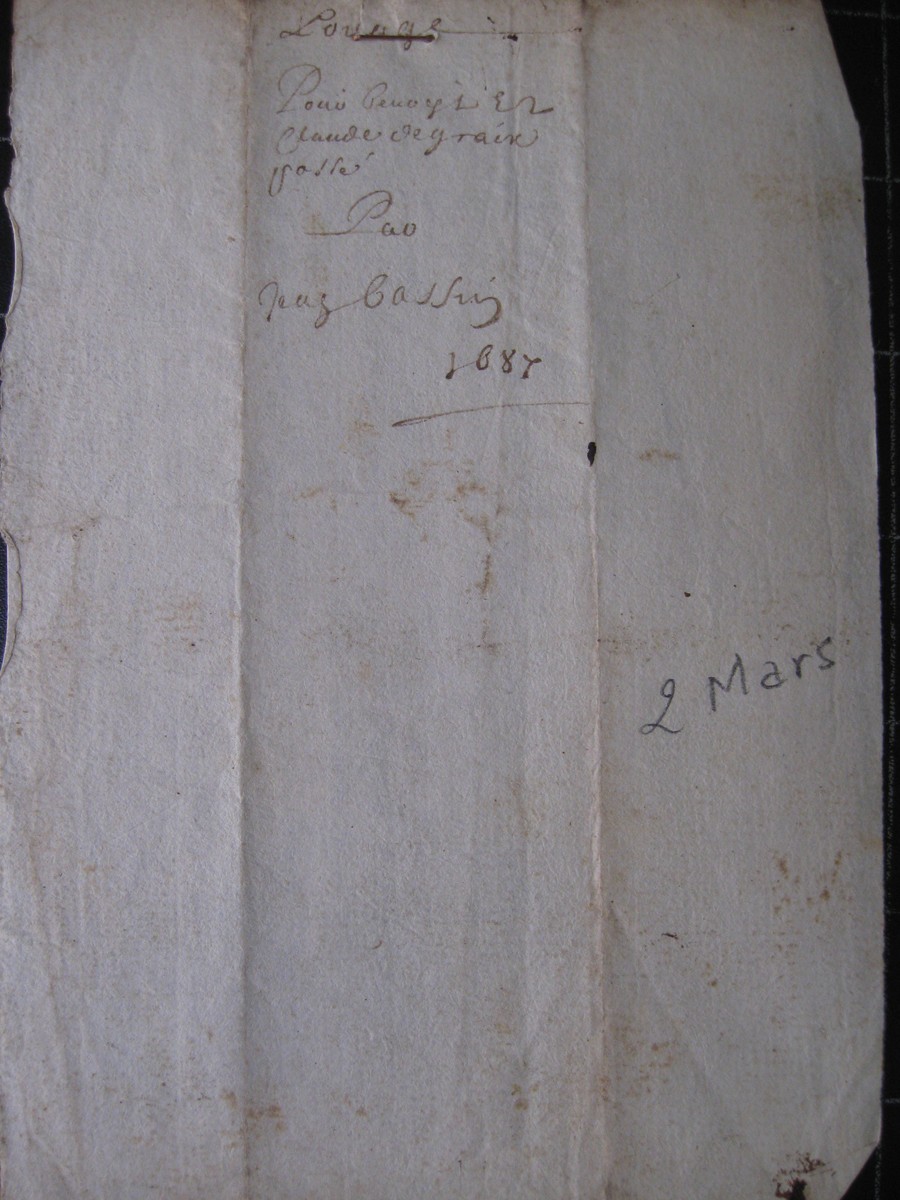 Louage
Pour benoyst Et
Claude degraix
passé
Par
bassin
1687
2 Mars